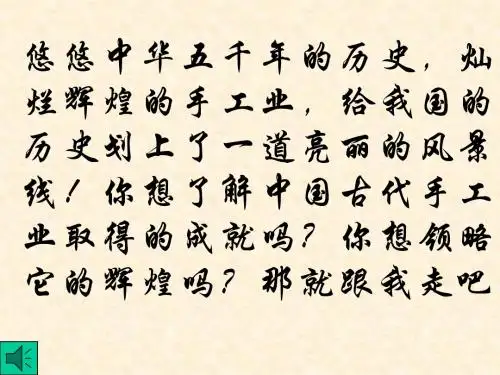 悠悠中华五千年的历史，灿
烂辉煌的手工业，给我国的
历史划上了一道亮丽的风景
线！你想了解中国古代手工
业取得的成就吗？你想领略
它的辉煌吗？那就跟我走吧